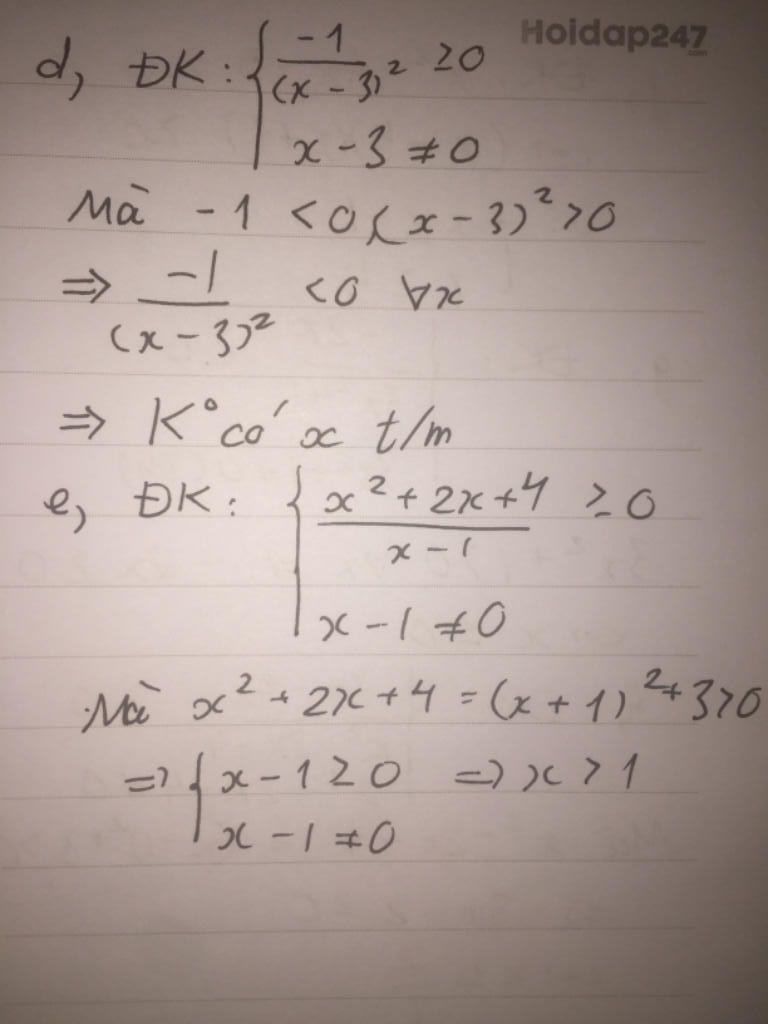 Hoidap247
.com
d, ĐK: { -1/(x - 3)² ≥ 0
x - 3 ≠ 0
Mà -1 < 0 ( x - 3)² > 0
=> -1/(x - 3)² < 0 ∀x
=> K° có x t/m
e, ĐK: { x² + 2x + 4/x - 1 ≥ 0
x - 1 ≠ 0
Mà x² + 2x + 4 = (x + 1)² + 3 > 0
=> { x - 1 ≥ 0 => x > 1
x - 1 ≠ 0